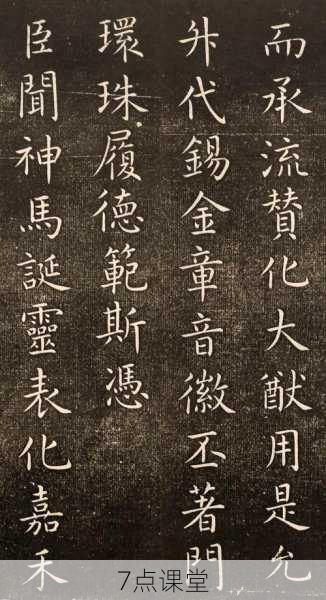 而承流賛化大猷用是允
升代錫金章音徽丕著門
環珠履德範斯憑
臣聞神馬誕靈表化嘉禾
7点课堂